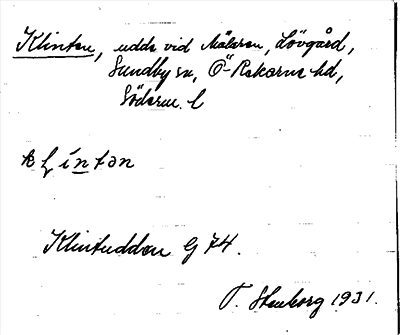 Klinten, udde vid Mälaren, Lövgård,
Sundby sn, Ö-Rekarne hd,
Söderm. l
klíntən
Klintudden G 74.
T. Stenborg 1931.